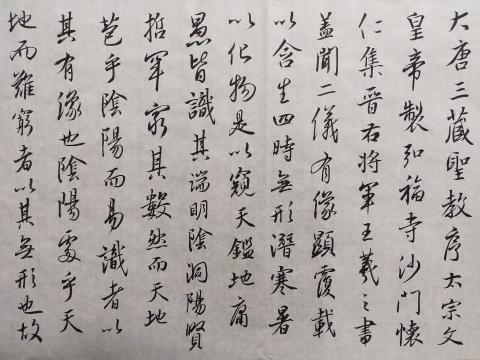 大唐三藏聖教序太宗文
皇帝製弘福寺沙門懷
仁集晉右將軍王羲之書
蓋聞二儀有像顯覆載
以含生四時無形潛寒暑
以化物是以窺天鑑地庸
愚皆識其端明陰洞陽賢
哲罕窮其數然而天地
苞乎陰陽而易識者以
其有像也陰陽處乎天
地而難窮者以其無形也故